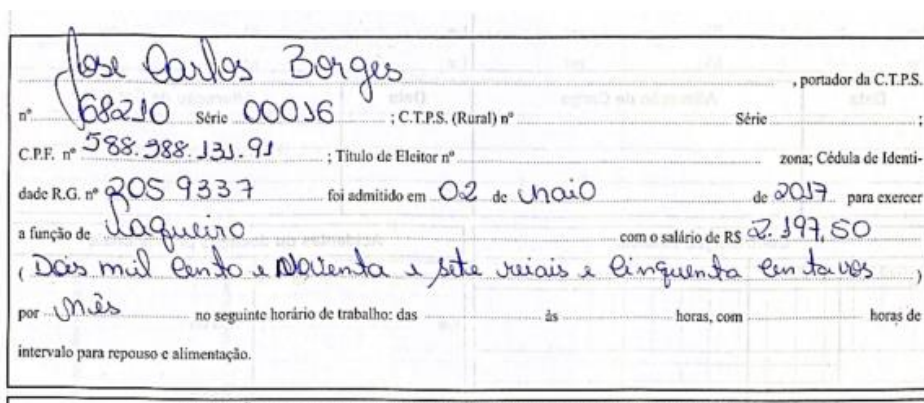 Jose Carlos Borges , portador da C.T.P.S.
nº 68210 Série 00016 ; C.T.P.S. (Rural) nº Série ;
C.P.F. nº 588.988.131.91 ; Título de Eleitor nº zona; Cédula de Identi-
dade R.G. nº 205 9337 foi admitido em 02 de maio de 2017 para exercer
a função de Vaqueiro com o salário de R$ 2.197,50
( Dois mil Cento e Noventa e sete reiais e Cinquenta Centavos )
por mês no seguinte horário de trabalho: das às horas, com horas de
intervalo para repouso e alimentação.